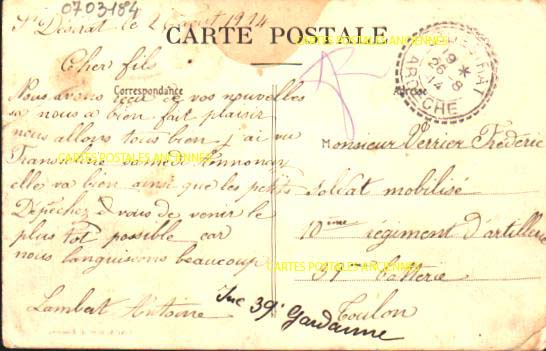 0703-184
St Désirat le 2 Août 1914
CARTE POSTALE
CARTES POSTALES ANCIENNES
Cher fils
Correspondance
Adresse
ARDECHE
Nous avons reçu de vos nouvelles
sa nous a bien fait plaisir
nous allons tous bien j'ai vu
CARTES POSTALES ANCIENNES
samedi Annonay
elle va bien ainsi que les petits
Dépêchez vous de venir le
plus tôt possible car
nous languissons beaucoup
Lambert Antoine
Monsieur Verrier Frédéric
CARTES POSTALES ANCIENNES
soldat mobilisé
10ième régiment d'artillerie
CARTES POSTALES ANCIENNES
39e batterie
Toulon
39e Gardanne